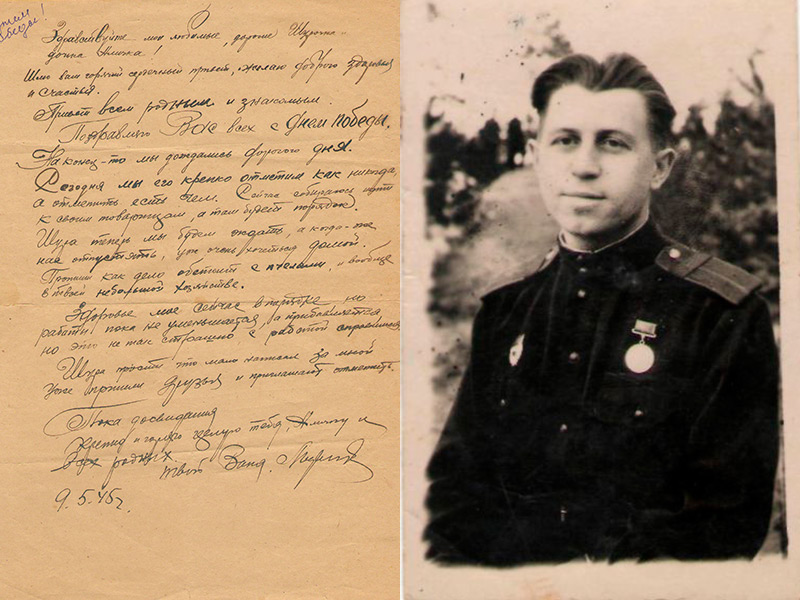 Здравствуйте мои любимые, дорогие Шурочка
дочка Аллочка!
Шлю вам горячий сердечный привет, желаю доброго здоровья
и счастья.
Привет всем родным и знакомым.
Поздравляю Вас всех с Днем победы.
На конец-то мы дождались дорогого дня.
Сегодня мы его крепко отметим как никогда,
а отметить есть чем. Сейчас собираюсь идти
к своим товарищам, а там будет порядок.
Шура теперь мы будем ждать, а когда-же
нас отпустят, уж очень хочется домой.
Пропиши как дело обстоит с пчелами, и вообще
в твоей небольшой хозяйстве.
Здоровье мое сейчас в норме, но
работы пока не уменьшается, а прибавляется,
но это не так страшно с работой справимся
Шура прости что мало написал за мной
уже пришли друзья и приглашают отметить.
Пока досвидания
Крепко и горячо целую тебя, Аллочку и
всех родных
твой Ваня.
9.5.45г.